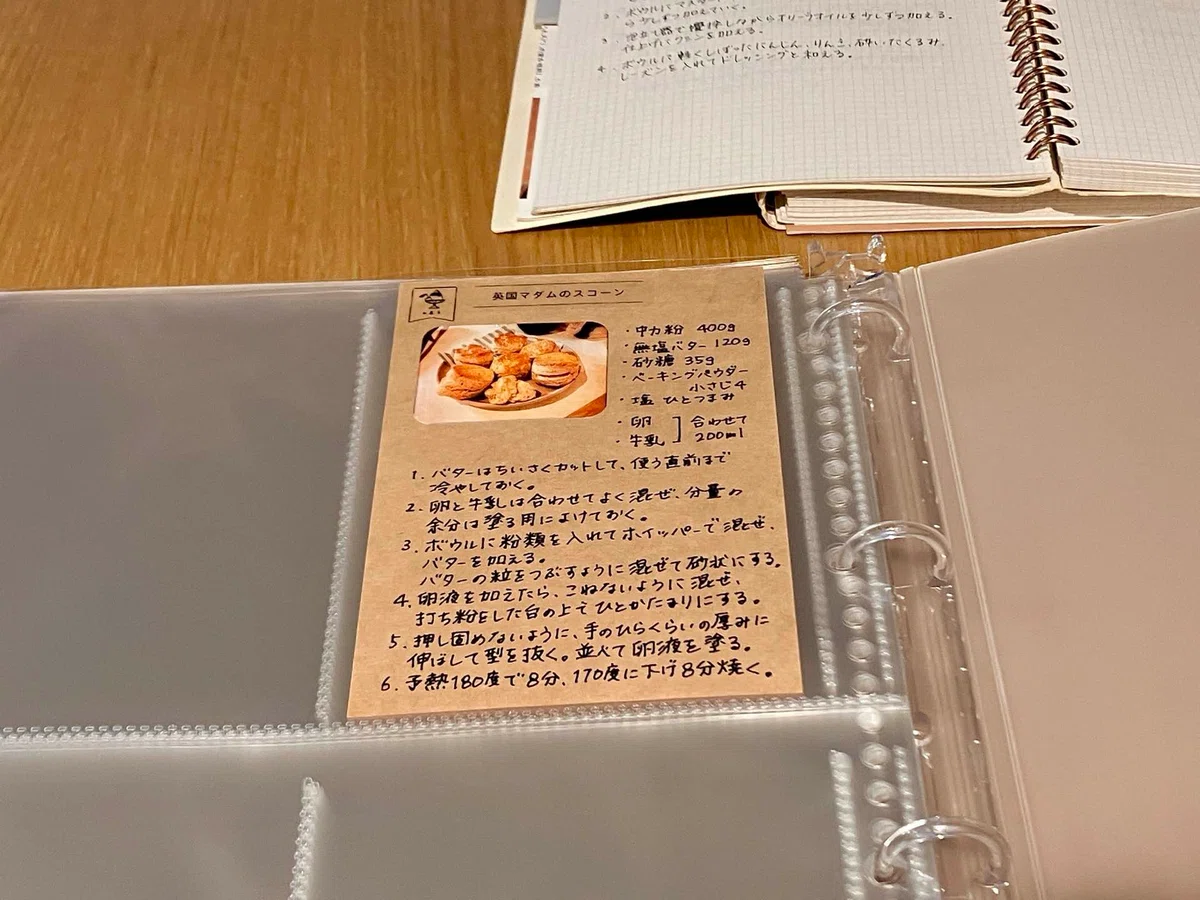 2. ボウルにマスタ
少しずつ加えていく。
3. 泡立て器で攪拌しながらオリーブオイルを少しずつ加える。
仕上げにクミンを加える。
4. ボウルに軽くしぼったにんじん、りんご、砕いたくるみ、
レーズンを入れてドレッシングと和える。
英国マダムのスコーン
・中力粉 400g
・無塩バター 120g
・砂糖 35g
・ベーキングパウダー
小さじ4
・塩 ひとつまみ
・卵
・牛乳
合わせて
200ml
1. バターはちいさくカットして、使う直前まで
冷やしておく。
2. 卵と牛乳は合わせてよく混ぜ、分量の
余分は塗る用によけておく。
3. ボウルに粉類を入れてホイッパーで混ぜ、
バターを加える。
バターの粒をつぶすように混ぜて砂状にする。
4. 卵液を加えたら、こねないように混ぜ、
打ち粉をした台の上でひとかたまりにする。
5. 押し固めないように、手のひらくらいの厚みに
伸ばして型を抜く。並べて卵液を塗る。
6. 予熱180度で8分、170度に下げ8分焼く。